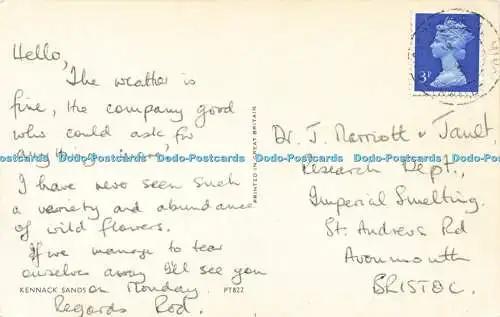 Hello,
The weather is
fine, the company good
who could ask for
anything more!
I have never seen such
a variety and abundance
of wild flowers.
If we manage to tear
ourselves away I'll see you
on Monday.
Regards Rod.
KENNACK SANDS
PT822
PRINTED IN GREAT BRITAIN
3P
Dr. J. Marriott & Janet,
Research Dept.,
Imperial Smelting,
St. Andrews Rd
Avonmouth
BRISTOL.
Dodo-Postcards Dodo-Postcards Dodo-Postcards Dodo-Postcards Dodo-Postcards